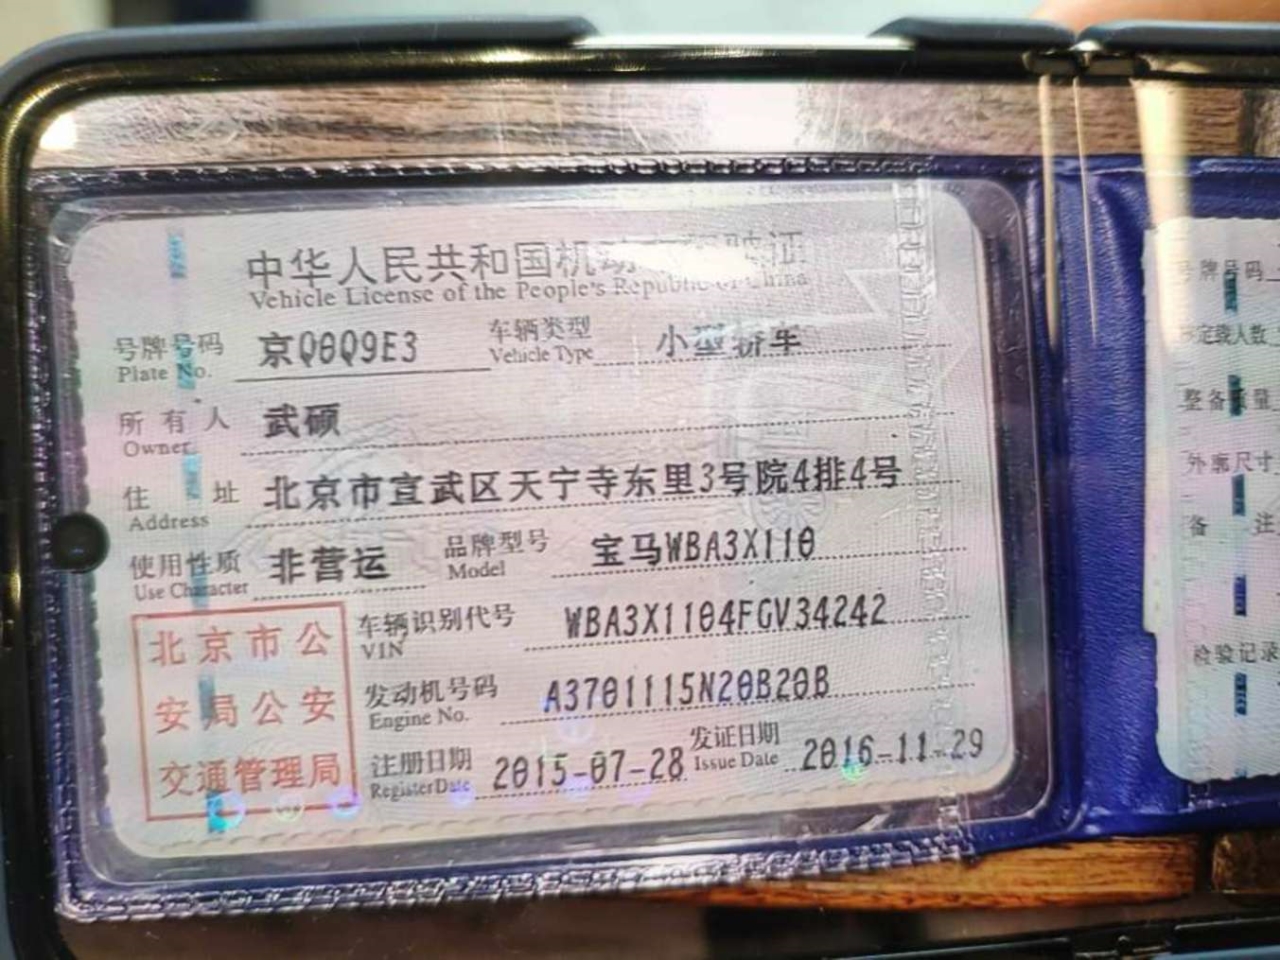 中华人民共和国机动 驶证
Vehicle License of the People's Republic of China
号牌号码 京Q0Q9E3 车辆类型 小型轿车
Plate No. Vehicle Type
所有人 武硕
Owner
住 址 北京市宣武区天宁寺东里3号院4排4号
Address
使用性质 非营运 品牌型号 宝马WBA3X110
Use Character Model
北京市公
安局公安
交通管理局
车辆识别代号 WBA3X1104FGV34242
VIN
发动机号码 A3701115N20B20B
Engine No.
注册日期 2015-07-28 发证日期 2016-11-29
Register Date Issue Date
号牌号码
定载人数
整备质量
外廓尺寸
备 注
检验记录